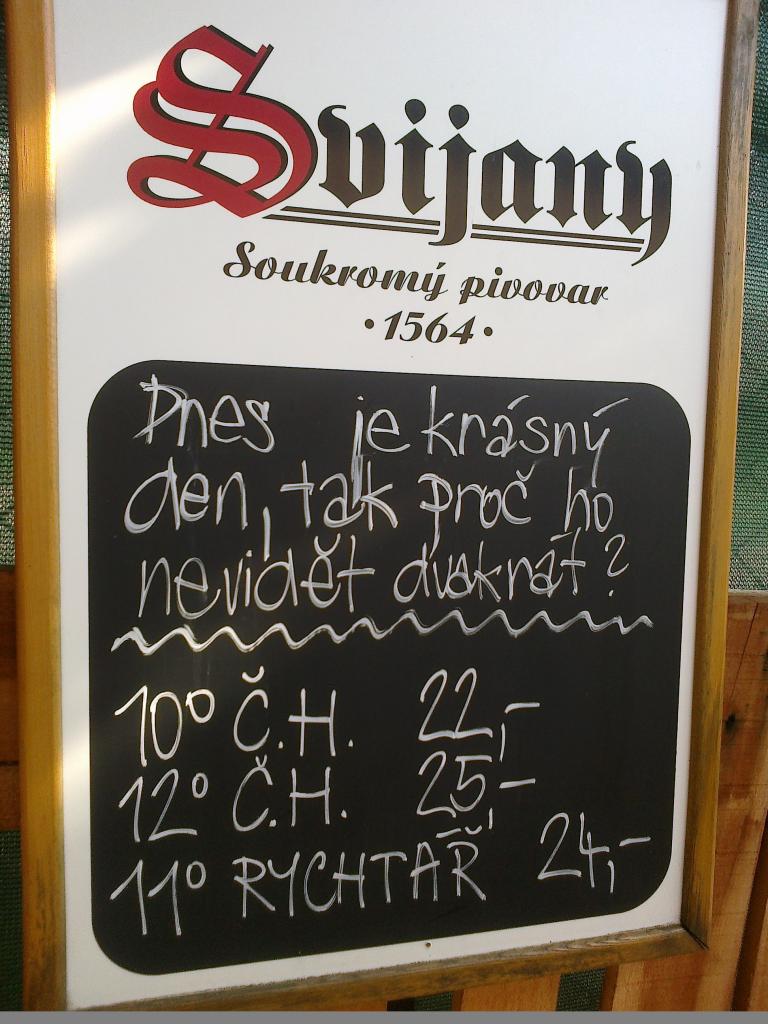 Svijany
Soukromý pivovar
·1564·
Dnes je krásný
den, tak proč ho
nevidět dvakrát?
10° Č.H. 22,-
12° Č.H. 25,-
11° RYCHTÁŘ 24,-